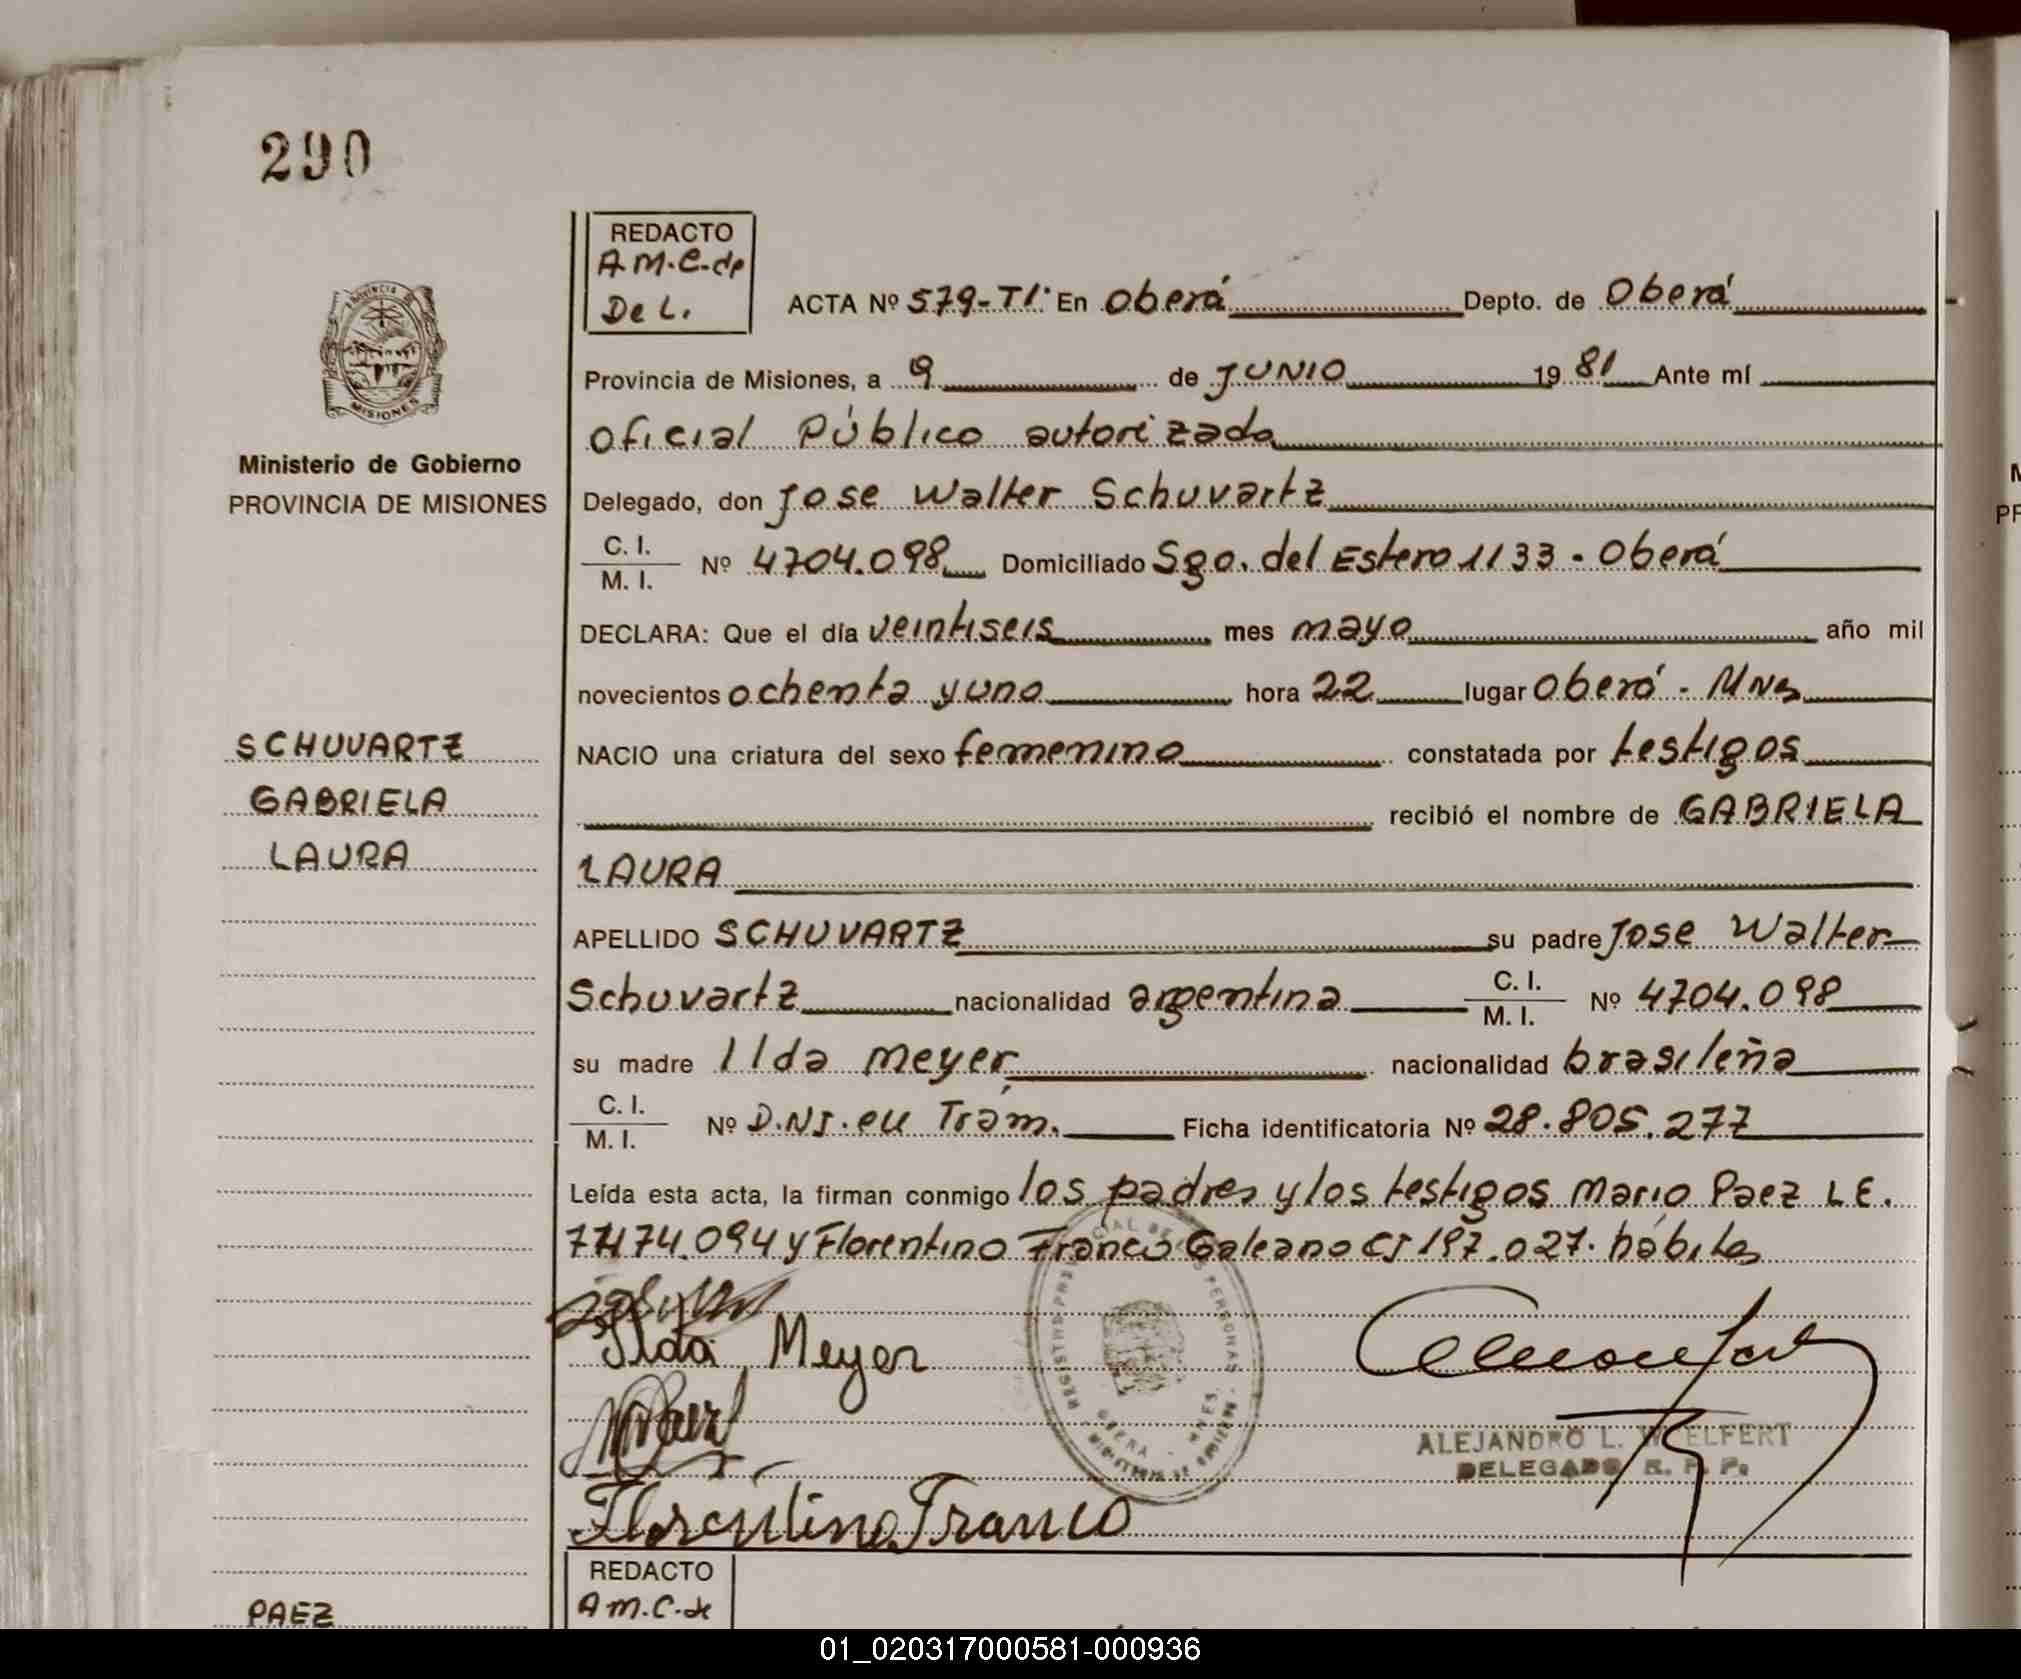 290
REDACTO
A.M.C. de
De L.
ACTA Nº 579-T1. En Oberá Depto. de Oberá
PROVINCIA
MISIONES
Provincia de Misiones, a 9 de JUNIO 1981 Ante mí
Oficial Público autorizado
Ministerio de Gobierno
PROVINCIA DE MISIONES
Delegado, don Jose Walter Schuvartz
C. I.
M. I. Nº 4704.098 Domiciliado Sgo. del Estero 1133 - Oberá
DECLARA: Que el día veintiseis mes mayo año mil
novecientos ochenta y uno hora 22 lugar Oberá - Mnes
SCHUVARTZ
GABRIELA
LAURA
NACIO una criatura del sexo femenino constatada por testigos
recibió el nombre de GABRIELA
LAURA
APELLIDO SCHUVARTZ su padre Jose Walter
Schuvartz nacionalidad argentina C. I. M. I. Nº 4704.098
su madre Ilda Meyer nacionalidad brasileña
C. I.
M. I. Nº D.NI. en Trám. Ficha identificatoria Nº 28.805.277
Leída esta acta, la firman conmigo los padres y los testigos Mario Paez L E.
y Florentino Franco Galeano CI 197.027. hábiles
Ilda Meyer
MPaez
Florentino Franco
ALEJANDRO L. W ELFERT
DELEGADO R. P. P.
REDACTO
A.M.C. de
PAEZ
M
PR
01_020317000581-000936